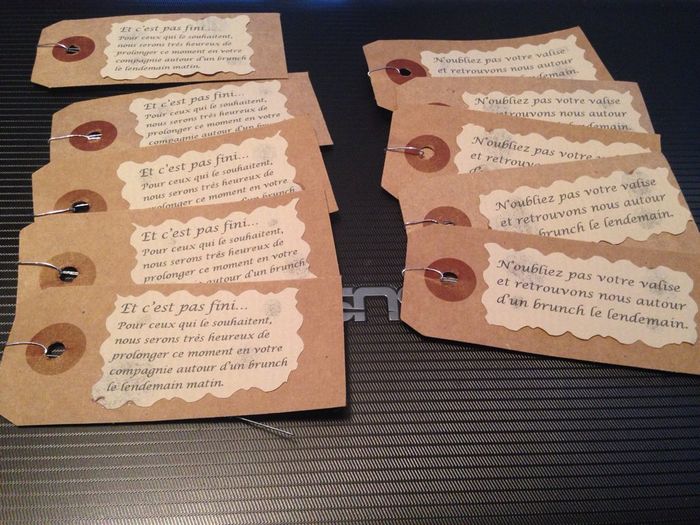 Et c'est pas fini...
Pour ceux qui le souhaitent,
nous serons trés heureux de
prolonger ce moment en votre
compagnie autour d'un brunch
le lendemain matin.
Et c'est pas fini...
Pour ceux qui le souhaitent,
nous serons trés heureux de
prolonger ce moment en votre
compagnie autour d'un brunch
Et c'est pas fini...
Pour ceux qui le souhaitent,
nous serons trés heureux de
prolonger ce moment en votre
Et c'est pas fini...
Pour ceux qui le souhaitent,
nous serons trés heureux de
prolonger ce moment en votre
compagnie autour d'un brunch
Et c'est pas fini...
Pour ceux qui le souhaitent,
nous serons trés heureux de
prolonger ce moment en votre
compagnie autour d'un brunch
le lendemain matin.
N'oubliez pas votre valise
et retrouvons nous autour
lendemain.
N'oubliez pas votre valise
et retrouvons nous autour
lendemain.
N'oubliez pas votre valise
et retrouvons nous autour
N'oubliez pas votre valise
et retrouvons nous autour
brunch le lendemain.
N'oubliez pas votre valise
et retrouvons nous autour
d'un brunch le lendemain.